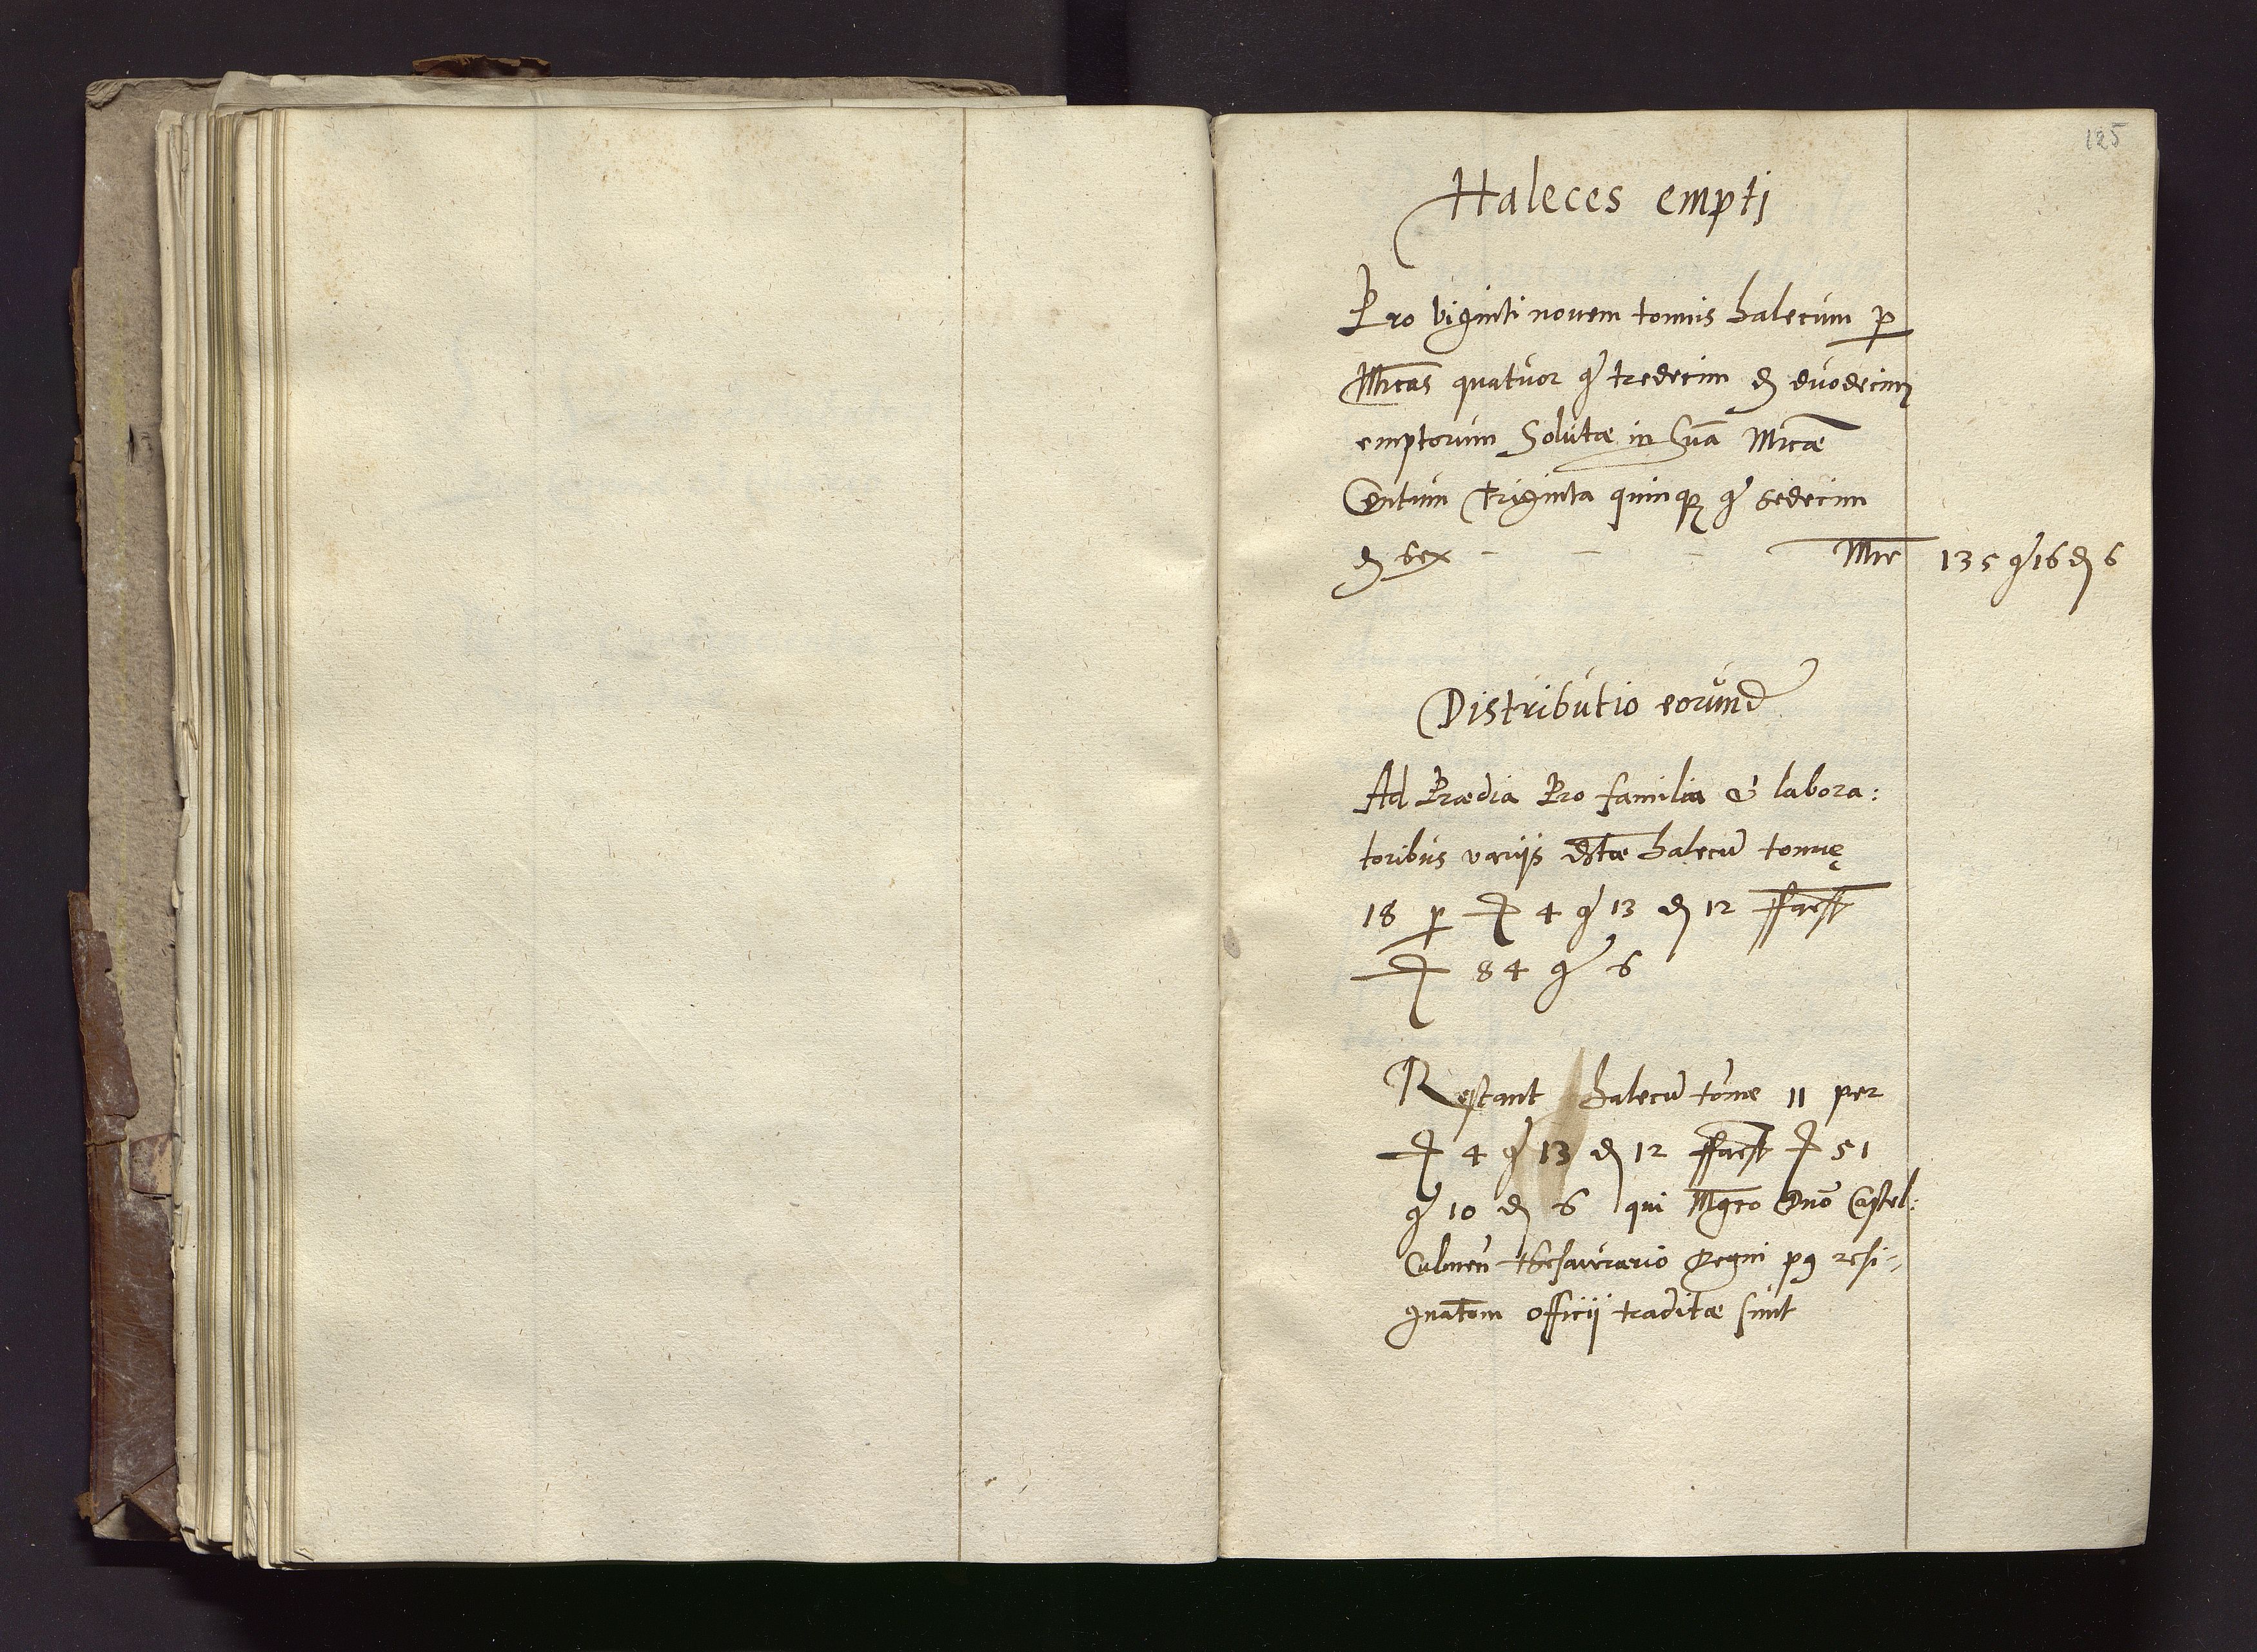 125
Haleces emptj
Pro viginti novem tonnis halecum p
Mrcas quatuor gr tredecim d duodecim
emptorum Solutæ in Suma Mrcæ
Centum triginta quinq gr sedecim
d sex - - - Mrc 135 gr 16 d 6
Distributio eorund
Ad Prædia Pro familia & labora:
toribus varijs datæ halecu tonnę
18 p 4 gr 13 d 12 ffacit
84 gr 6
Restant halecu tonæ 11 per
4 gr 13 d 12 ffacit 51
gr 10 d 6 qui Mgco Dno Castel:
Culmen thesaurario Regni resi-
gnatom officij traditæ sunt